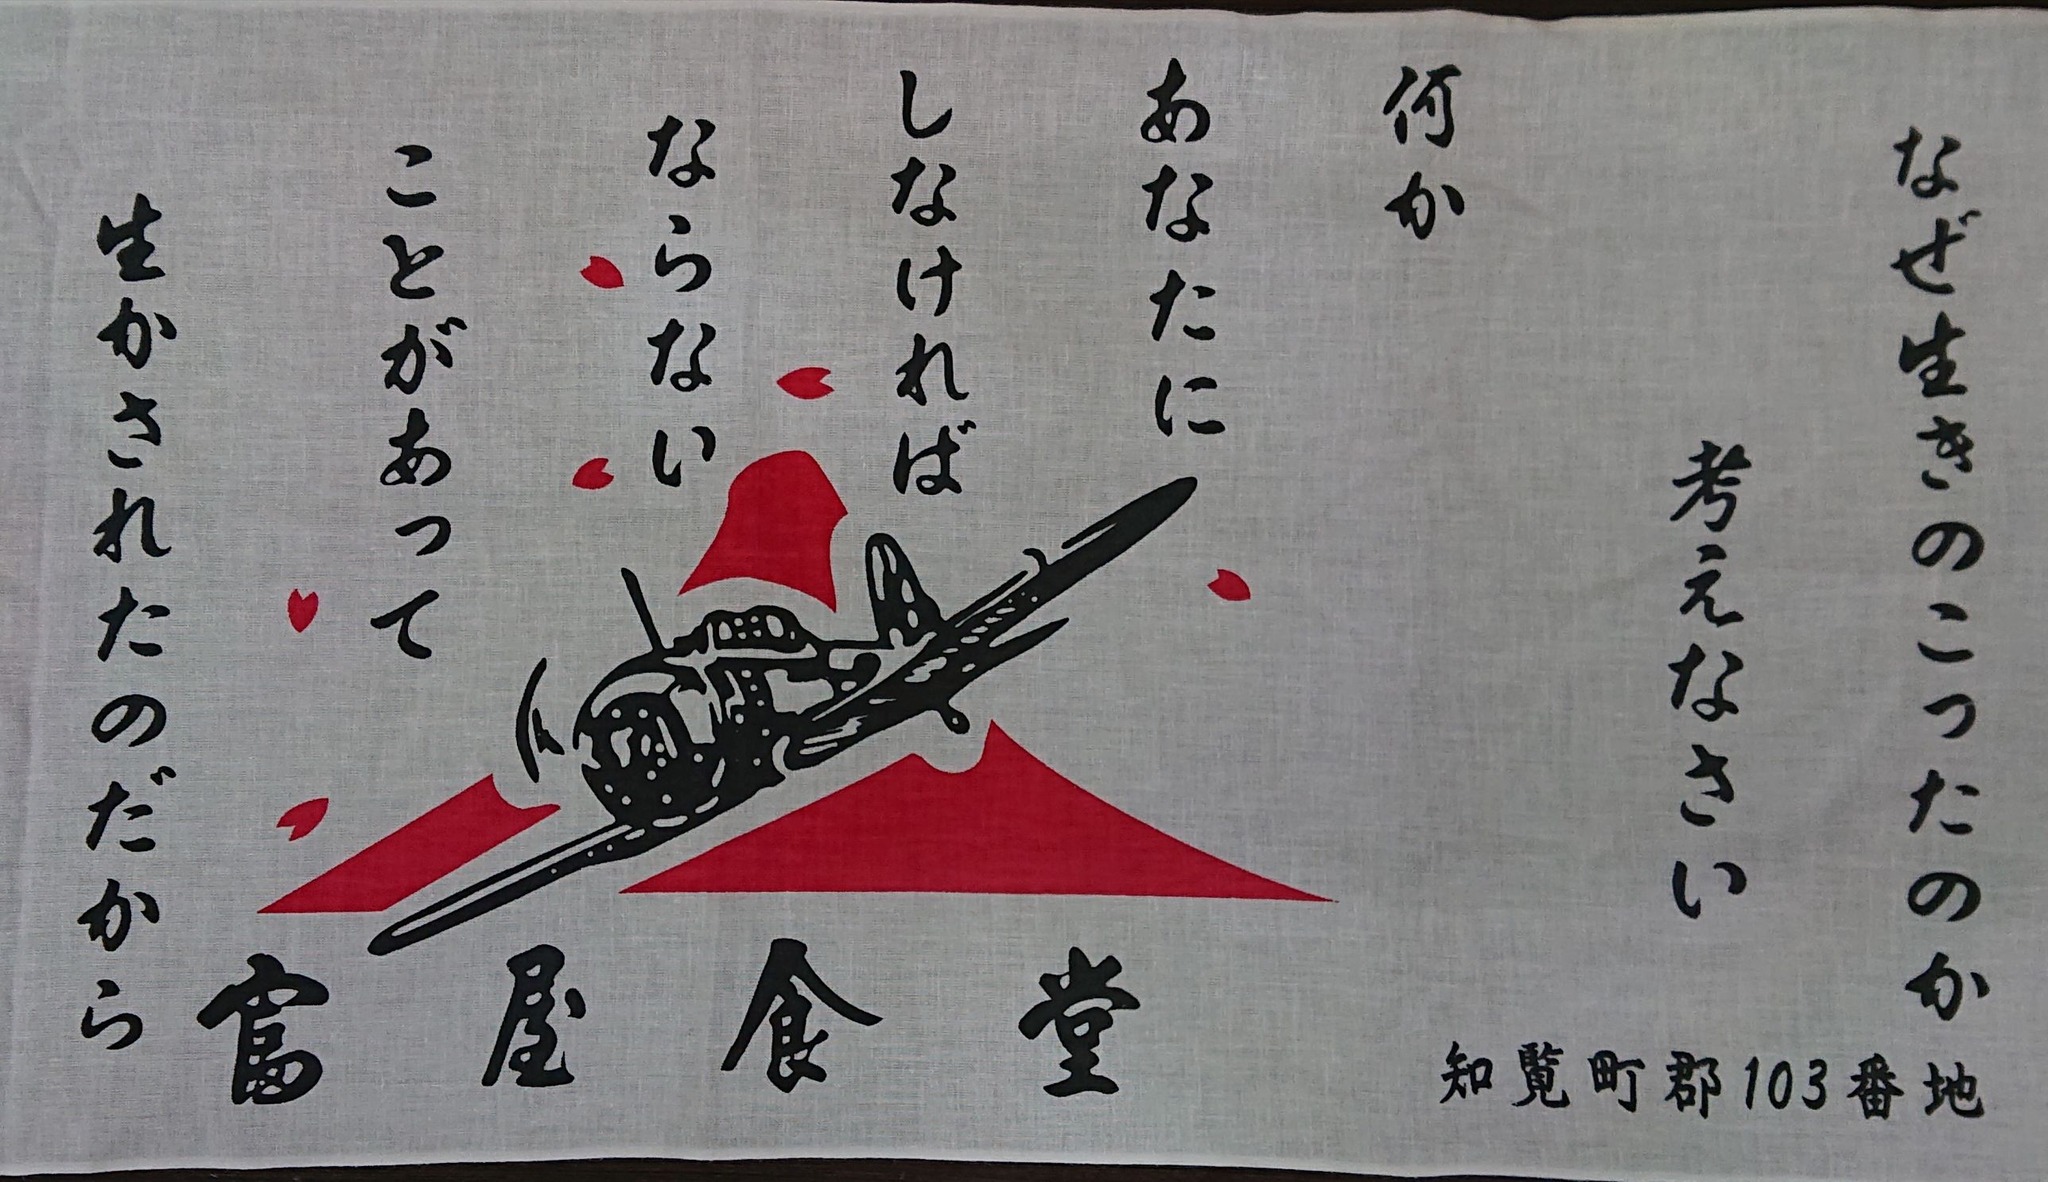 なぜ生きのこったのか
考えなさい
何か
あなたに
しなければ
ならない
ことがあって
生かされたのだから
富屋食堂
知覧町郡103番地